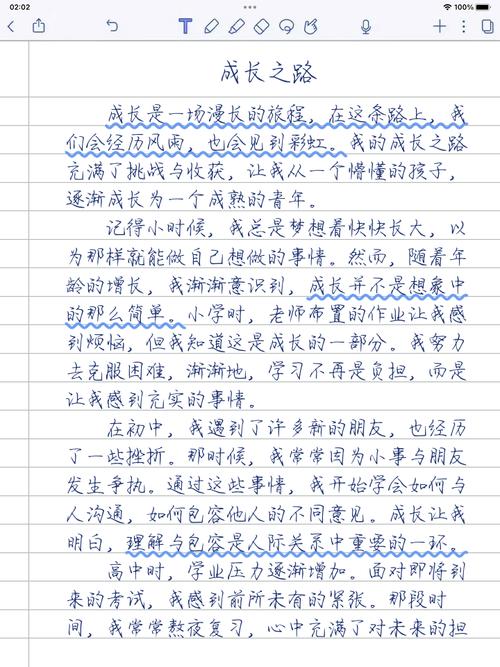 02:02
100%
成长之路
成长是一场漫长的旅程，在这条路上，我
们会经历风雨，也会见到彩虹。我的成长之路
充满了挑战与收获，让我从一个懵懂的孩子，
逐渐成长为一个成熟的青年。
记得小时候，我总是梦想着快快长大，以
为那样就能做自己想做的事情。然而，随着年
龄的增长，我渐渐意识到，成长并不是想象中
的那么简单。小学时，老师布置的作业让我感
到烦恼，但我知道这是成长的一部分。我努力
去克服困难，渐渐地，学习不再是负担，而是
让我感到充实的事情。
在初中，我遇到了许多新的朋友，也经历
了一些挫折。那时候，我常常因为小事与朋友
发生争执。通过这些事情，我开始学会如何与
人沟通，如何包容他人的不同意见。成长让我
明白，理解与包容是人际关系中重要的一环。
高中时，学业压力逐渐增加。面对即将到
来的考试，我感到前所未有的紧张。那段时
间，我常常熬夜复习，心中充满了对未来的担